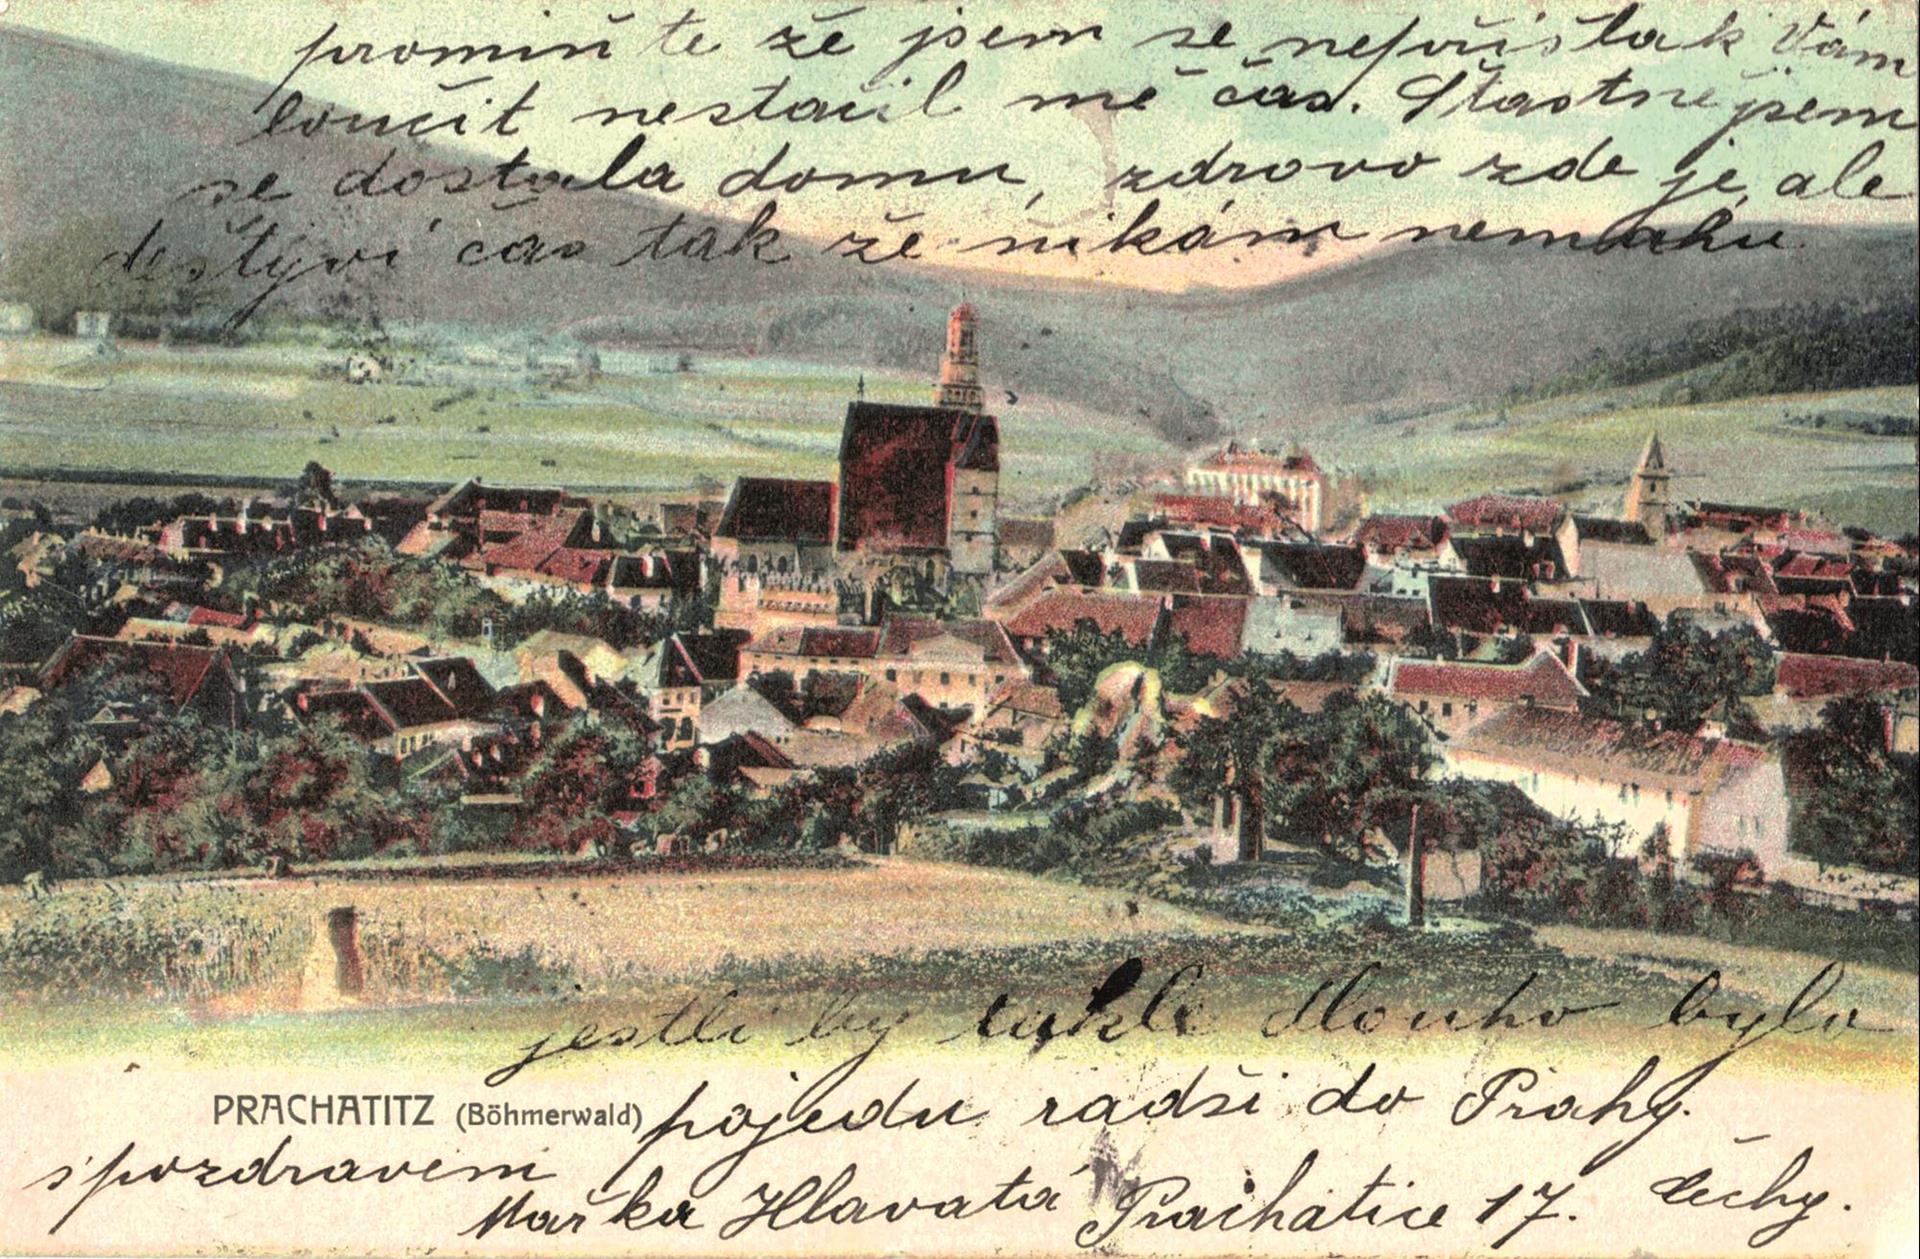 promiňte že jsem se nepřišla k Vám
loučit nestačil mě čas. Štastně jsem
se dostala domu, zdrovo zde je, ale
deštyvi čas tak že nikám nemohu
jestli by takle dlouho bylo
PRACHATITZ (Böhmerwald) pojedu radši do Prahy.
s'pozdravem
Mařka Hlavatá Prachatice 17. Čechy.